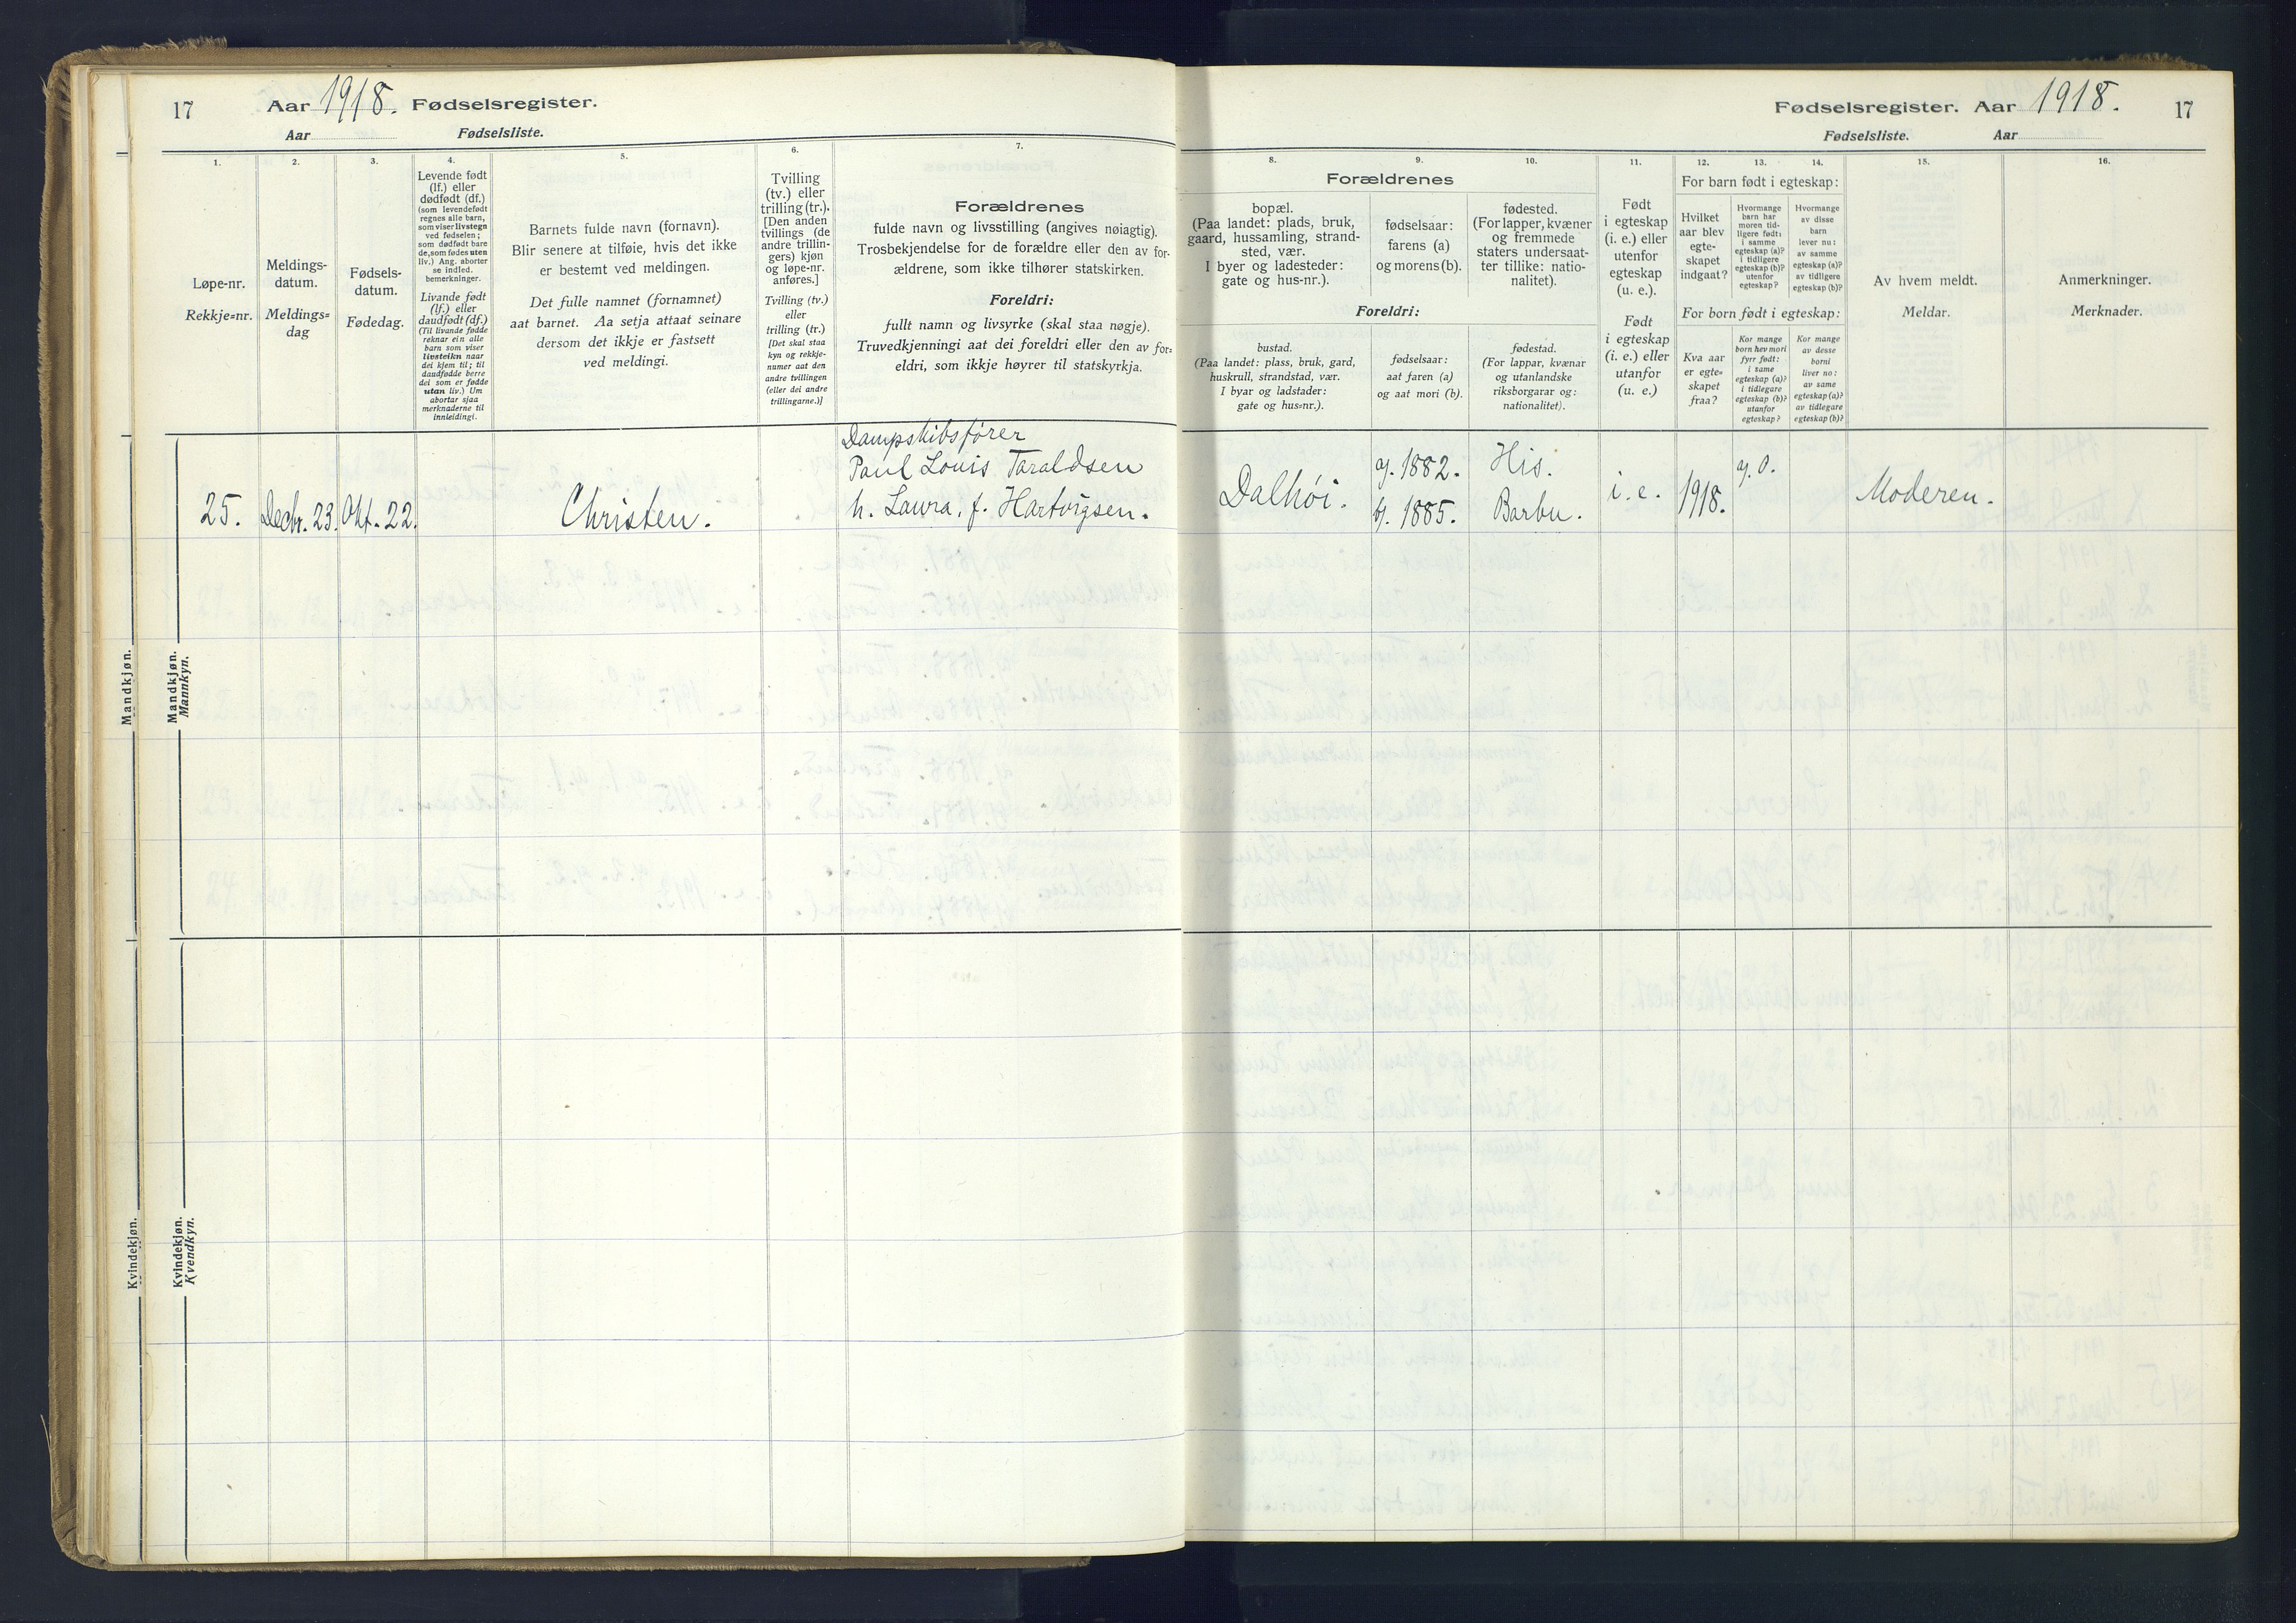 17 Aar 1918. Fødselsregister.
Aar Fødselsliste.
1.
Løpe-nr.
Rekkje=nr.
2.
Meldings-
datum.
Meldings=
dag
3.
Fødsels-
datum.
Fødedag.
4.
Levende født
(lf.) eller
dødfødt (df.)
(som levendefødt
regnes alle barn,
som viser livstegn
ved fødselen;
som dødfødt bare
de, som fødes uten
liv.) Ang. aborter
se indled.
bemerkninger.
Livande født
(lf.) eller
daudfødt (df.)
(Til livande fødde
reknar ein alle
barn som viser
livsteikn naar
dei kjem til; til
daudfødde berre
dei som er fødde
utan liv.) Um
abortar sjaa
merknaderne til
innleidingi.
5.
Barnets fulde navn (fornavn).
Blir senere at tilføie, hvis det ikke
er bestemt ved meldingen.
Det fulle namnet (fornamnet)
aat barnet. Aa setja attaat seinare
dersom det ikkje er fastsett
ved meldingi.
6.
Tvilling
(tv.) eller
trilling (tr.).
[Den anden
tvillings (de
andre trillin-
gers) kjøn
og løpe-nr.
anføres.]
Tvilling (tv.)
eller
trilling (tr.)
[Det skal staa
kyn og rekkje-
numer aat den
andre tvillingen
(eller dei andre
trillingarne.)]
7.
Forældrenes
fulde navn og livsstilling (angives nøiagtig).
Trosbekjendelse for de forældre eller den av for-
ældrene, som ikke tilhører statskirken.
Foreldri:
fullt namn og livsyrke (skal staa nøgje).
Truvedkjenningi aat dei foreldri eller den av for=
eldri, som ikkje høyrer til statskyrkja.
Mandkjøn.
Mandkjøn.
Mannkyn.
25. Decbr. 23. Okt. 22. Christen.
Dampskibsfører
Paul Louis Taraldsen
h. Laura, f. Hartvigsen.
Kvindekjøn.
Kvindekjøn.
Kvendkyn.
Fødselsregister. Aar 1918. 17
Fødselsliste. Aar
8.
Forældrenes
bopæl.
(Paa landet: plads, bruk,
gaard, hussamling, strand-
sted, vær.
I byer og ladesteder:
gate og hus-nr.).
Foreldri:
bustad.
(Paa landet: plass, bruk, gard,
huskrull, strandstad, vær.
I byar og ladstader:
gate og hus=nr.).
9.
fødselsaar:
farens (a)
og morens (b).
fødselsaar:
aat faren (a)
og aat mori (b).
10.
fødested.
(For lapper, kvæner
og fremmede
staters undersaat-
ter tillike: natio-
nalitet).
fødestad.
(For lappar, kvænar
og utanlandske
riksborgarar og:
nationalitet).
11.
Født
i egteskap
(i. e.) eller
utenfor
egteskap
(u. e.).
Født
i egteskap
(i. e.) eller
utanfor
(u. e.)
12.
13.
14.
For barn født i egteskap:
Hvilket
aar blev
egte-
skapet
indgaat?
Hvormange
barn har
moren tid-
ligere født:
i samme
egteskap (a)?
i tidligere
egteskap (b)?
utenfor
egteskap?
Hvormange
av disse
barn
lever nu:
av samme
egteskap (a)?
av tidligere
egteskap (b)?
For born født i egteskap:
Kva aar
er egte=
skapet
fraa?
Kor mange
born hev mori
fyrr født:
i same
egteskap (a)?
i tidlegare
egteskap (b)?
utanfor
egteskap?
Kor mange
av desse
borni
liver no:
av same
egteskap (a)?
av tidlegare
egteskap (b)?
15.
Av hvem meldt.
Meldar.
16.
Anmerkninger.
Merknader.
Dalhói. a. 1882. His. i. e. 1918. a. 0. Moderen.
b. 1885. Barbu.